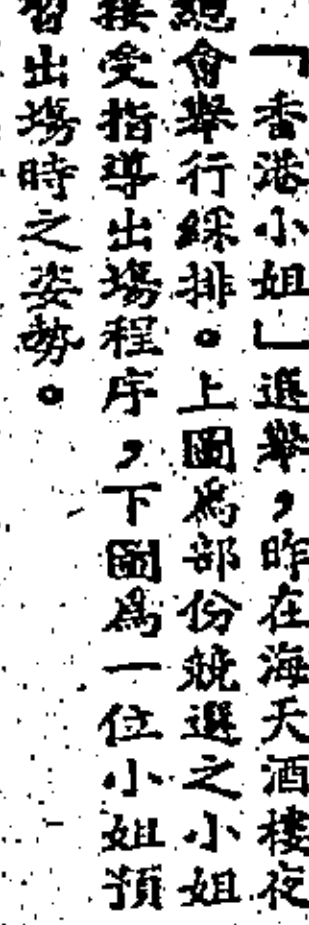 「香港小姐」選舉，昨在海天酒樓夜
總會舉行綵排。上圖為部份競選之小姐
接受指導出場程序，下圖為一位小姐預
習出場時之姿勢。